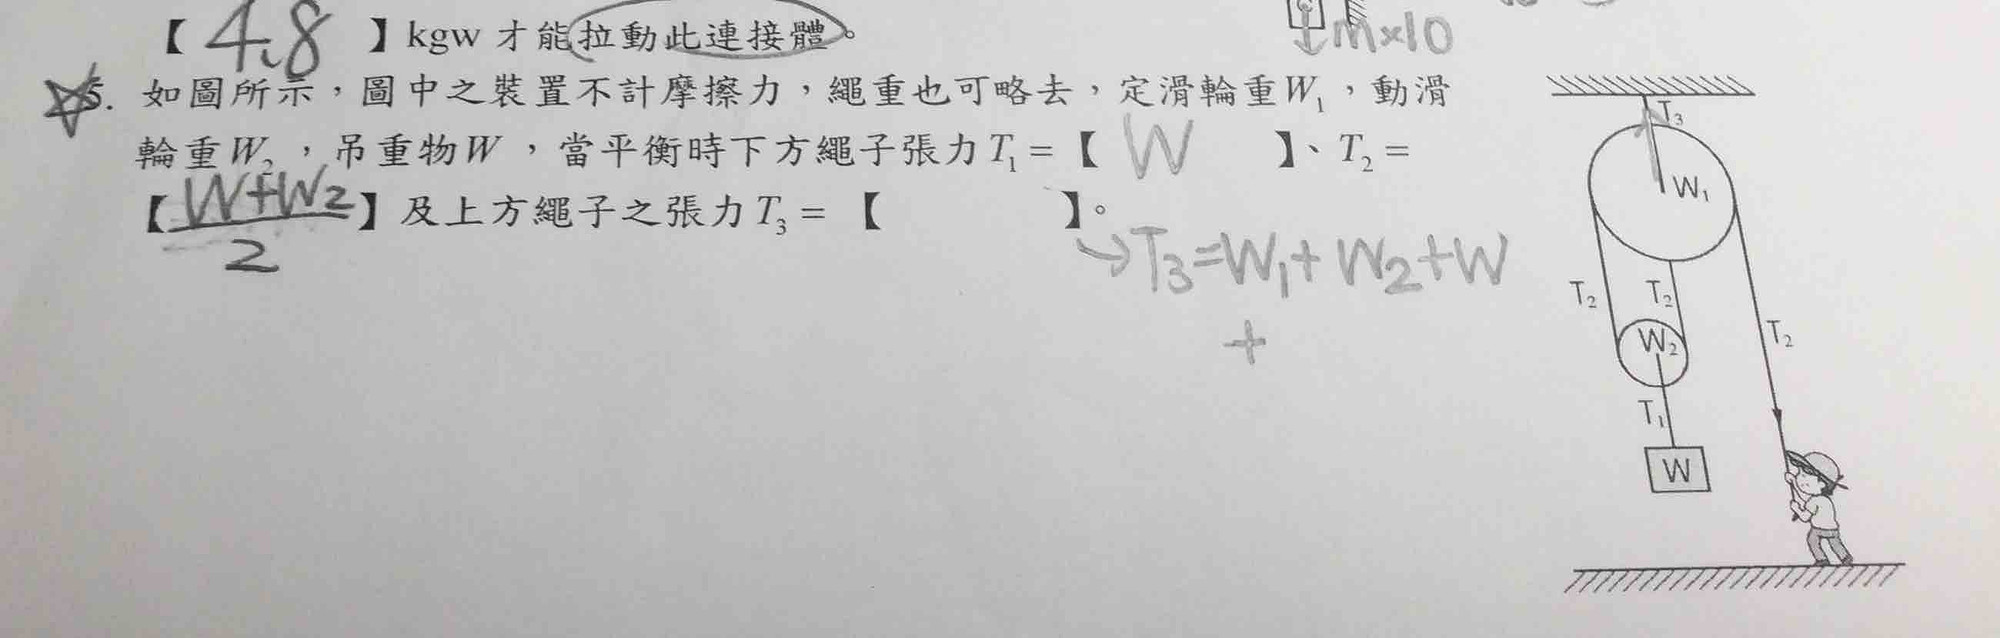 【 4.8 】kgw 才能拉動此連接體。
m×10
5. 如圖所示，圖中之裝置不計摩擦力，繩重也可略去，定滑輪重W₁，動滑
輪重W₂，吊重物W，當平衡時下方繩子張力T₁=【 W 】、T₂=
【 W+W₂ 】及上方繩子之張力T₃=【 】。
2
→T₃=W₁+W₂+W
+
T₃
W₁
T₂ T₂
T₂
W₂
T₁
W